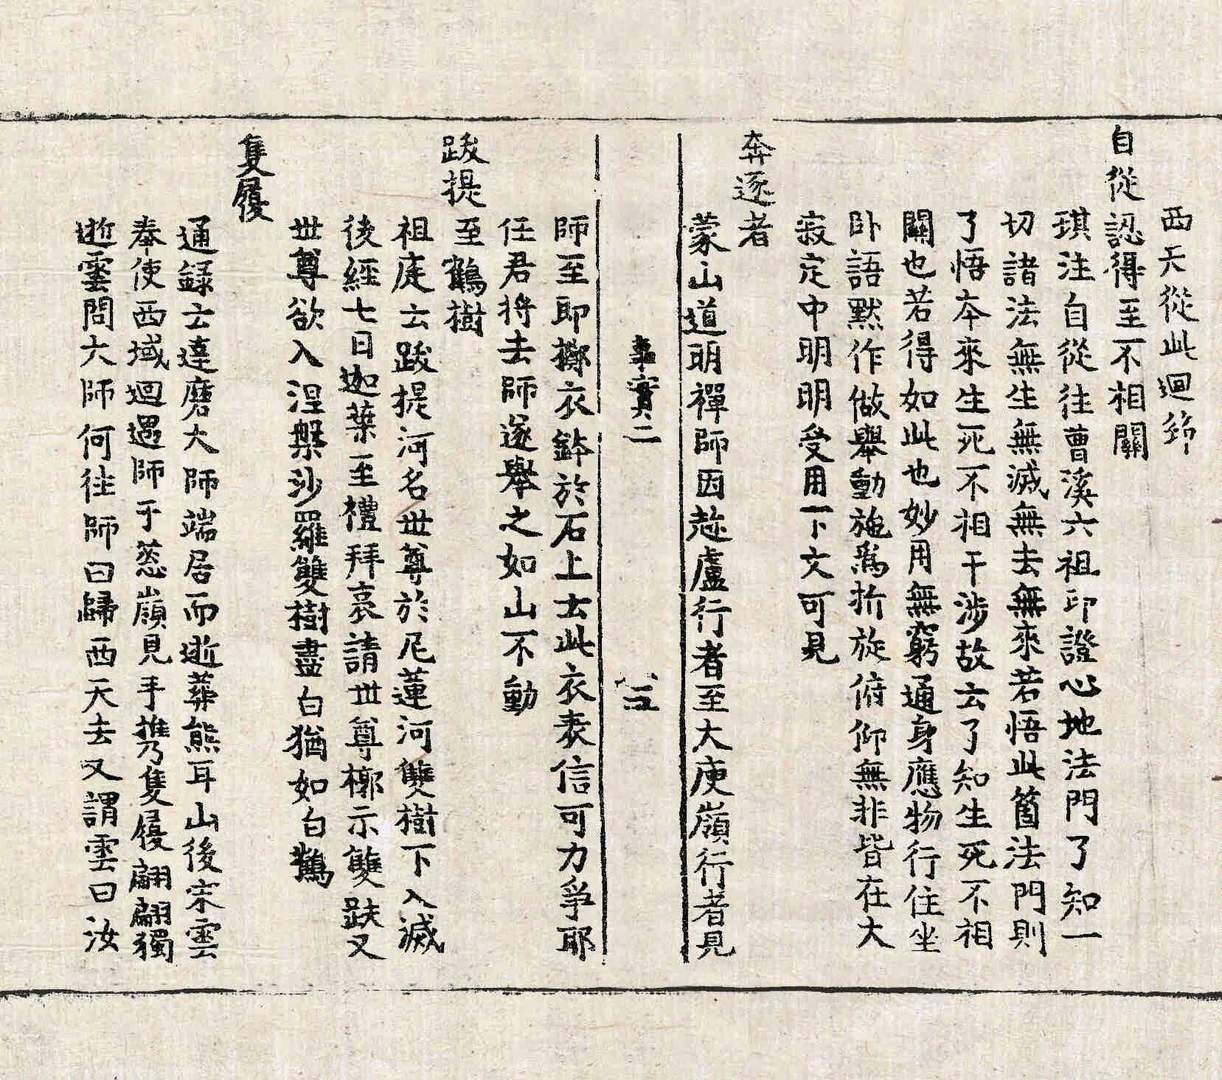 西天從此迴
自從認得至不相關
琪注自從往曹溪六祖印證心地法門了知一
切諸法無生無滅無去無來若悟此箇法門則
了悟本來生死不相干涉故云了知生死不相
關也若得如此也妙用無窮通身應物行住坐
卧語默作做舉動施爲折旋俯仰無非皆在大
寂定中明明受用下文可見
奔逐者
蒙山道明禪師因趂盧行者至大庾嶺行者見
事實二
三
師至即擲衣鉢於石上云此衣表信可力爭耶
任君將去師遂舉之如山不動
跋提至鶴樹
祖庭云跋提河名世尊於尼蓮河雙樹下入滅
後經七日迦葉至禮拜哀請世尊槨示雙趺又
世尊欲入涅槃沙羅雙樹盡白猶如白鶴
隻履
通錄云達磨大師端居而逝葬熊耳山後宋雲
奉使西域迴遇師于蔥嶺見手携隻履翩翩獨
逝雲問大師何往師曰歸西天去又謂雲曰汝